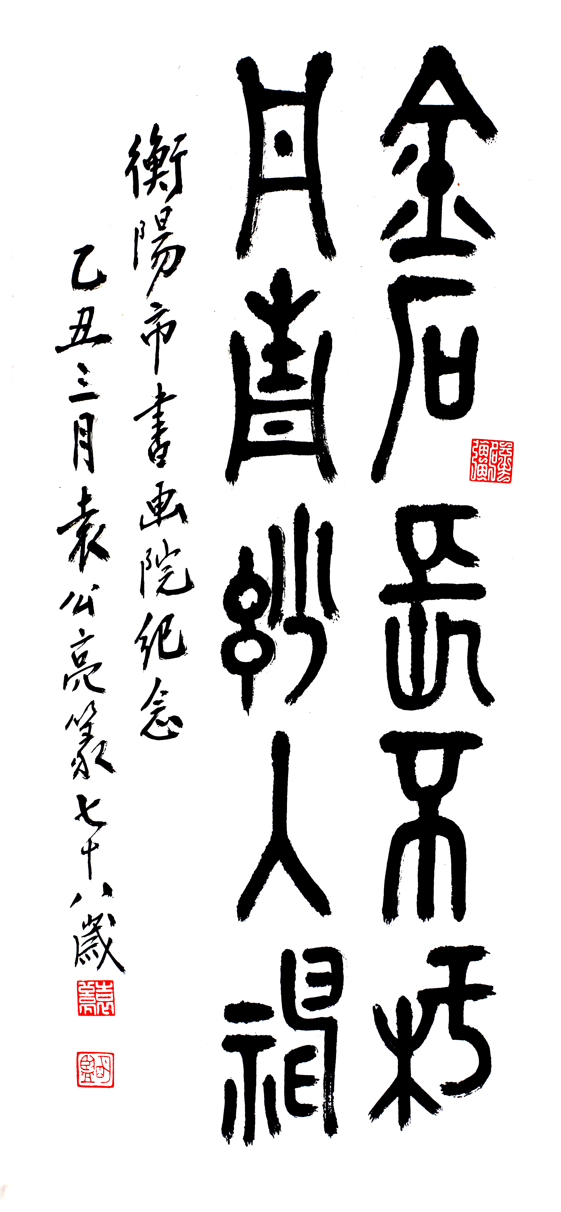 金石長不朽
丹青妙入神
衡陽市書画院紀念
乙丑三月袁公亮篆七十八歲